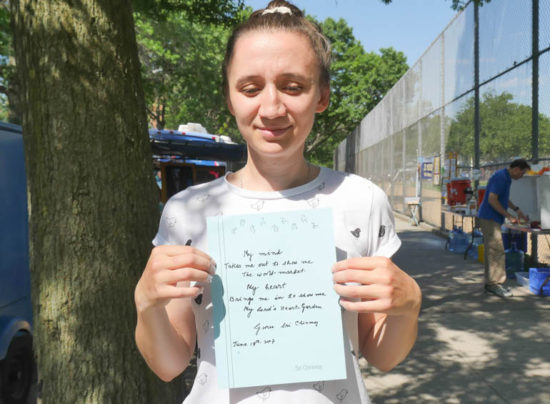 My mind
Takes me out to show me
The world-market.
My heart
Brings me in to show me
My Lord's Heart-Garden
Guru Sri Chinmoy
June 19th, 2017
Sri Chinmoy